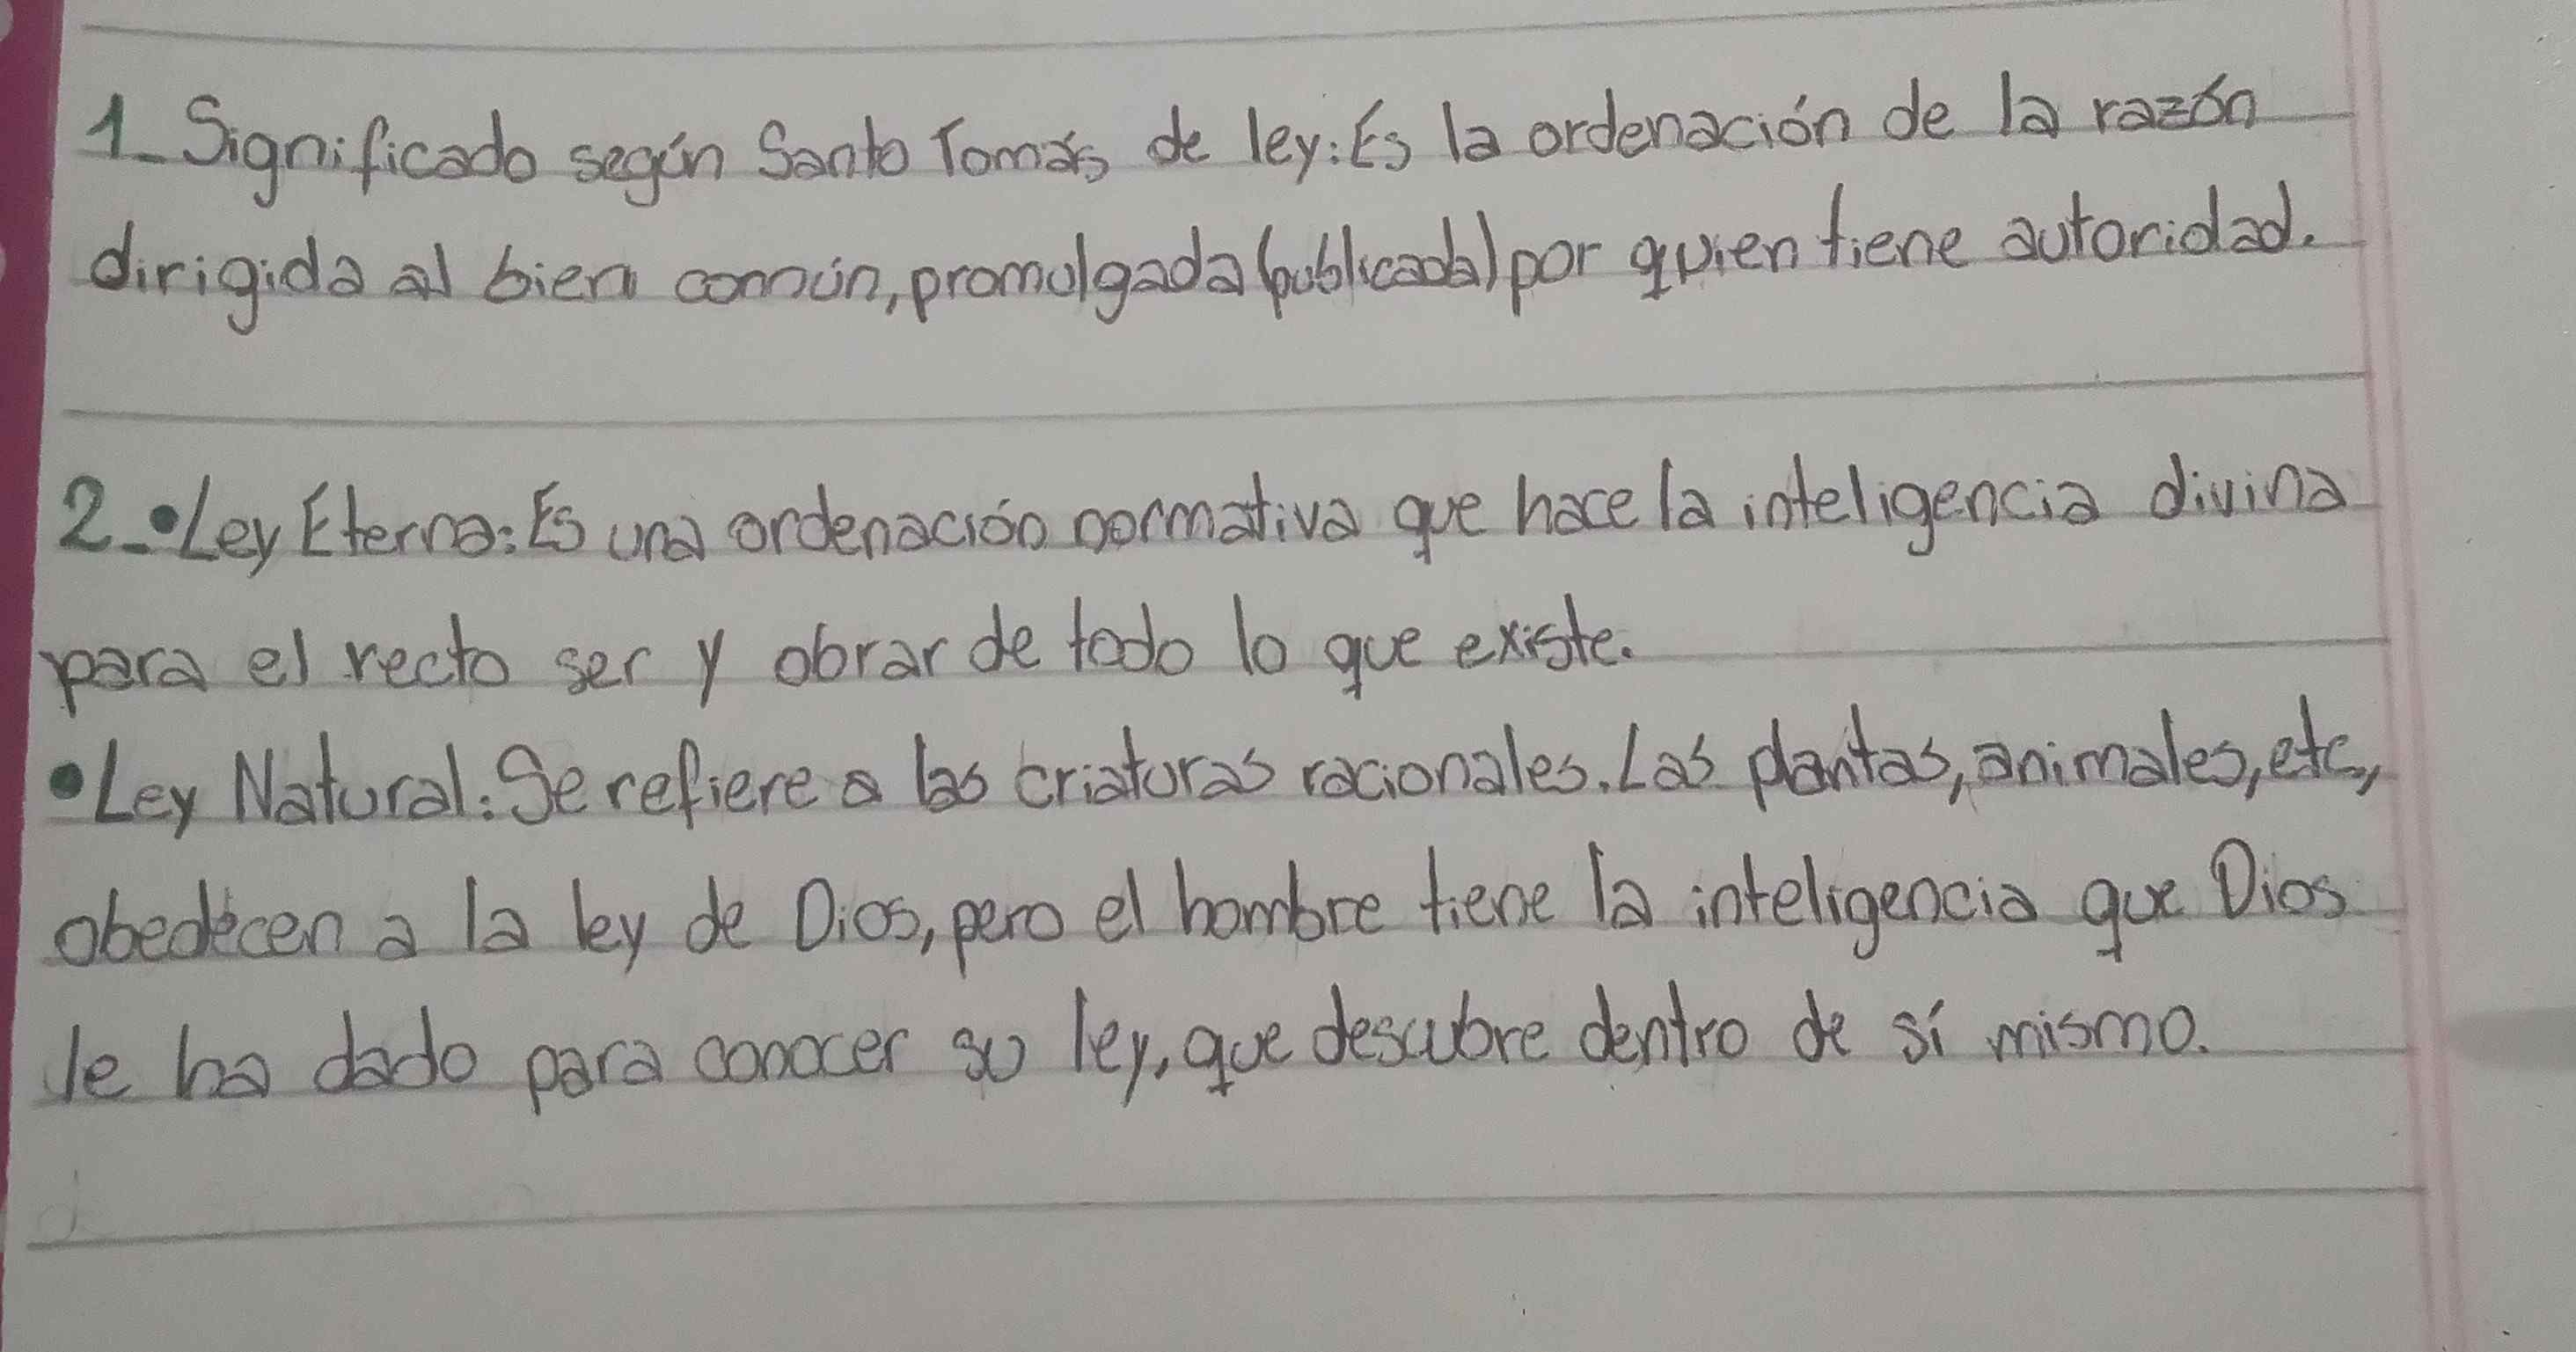 1_ Significado según Santo Tomás de ley: Es la ordenación de la razón
dirigida al bien común, promulgada (publicada) por quien tiene autoridad.
2_ •Ley Eterna: Es una ordenación normativa que hace la inteligencia divina
para el recto ser y obrar de todo lo que existe.
•Ley Natural: Se refiere a las criaturas racionales. Las plantas, animales, etc,
obedecen a la ley de Dios, pero el hombre tiene la inteligencia que Dios
le ha dado para conocer su ley, que descubre dentro de sí mismo.